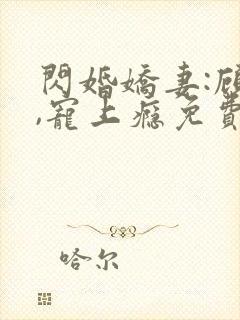 閃婚嬌妻:
,寵上癮免費
哈尔